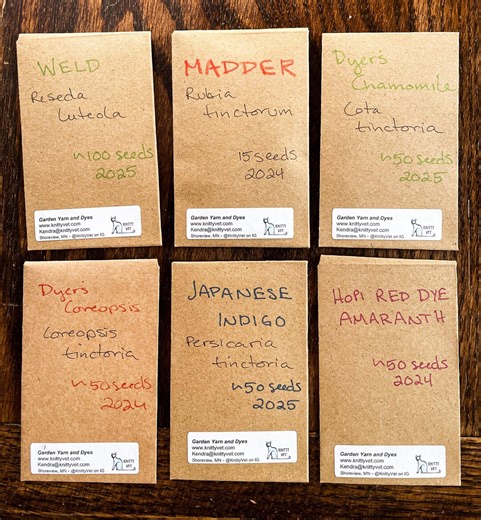 WELD
Reseda
luteola
~100 seeds
2025
Garden Yarn and Dyes
www.knittyvet.com
Kendra@knittyvet.com
Shoreview, MN - @KnittyVet on IG
KNITTY
VET
MADDER
Rubia
tinctorum
15 seeds
2024
Garden Yarn and Dyes
www.knittyvet.com
Kendra@knittyvet.com
Shoreview, MN - @KnittyVet on IG
KNITTY
VET
Dyer's
Chamomile
Cota
tinctoria
~50 seeds
2025
Garden Yarn and Dyes
www.knittyvet.com
Kendra@knittyvet.com
Shoreview, MN - @KnittyVet on IG
KNITTY
VET
Dyers
Coreopsis
Coreopsis
tinctoria
~50 seeds
2024
Garden Yarn and Dyes
www.knittyvet.com
Kendra@knittyvet.com
Shoreview, MN - @KnittyVet on IG
KNITTY
VET
JAPANESE
INDIGO
Persicaria
tinctoria
~50 seeds
2025
Garden Yarn and Dyes
www.knittyvet.com
Kendra@knittyvet.com
Shoreview, MN - @KnittyVet on IG
KNITTY
VET
HOPI RED DYE
AMARANTH
~50 seeds
2024
Garden Yarn and Dyes
www.knittyvet.com
Kendra@knittyvet.com
Shoreview, MN - @KnittyVet on IG
KNITTY
VET